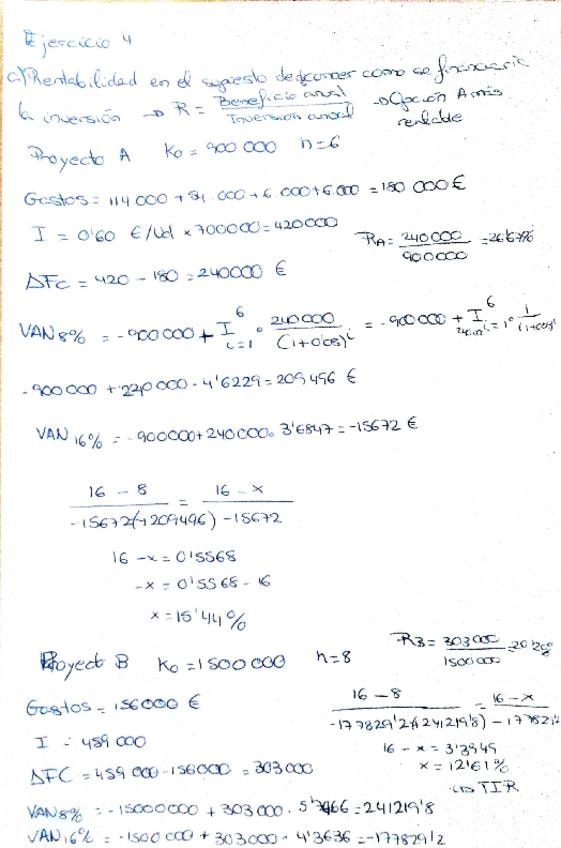 Ejercicio 4
a) Rentabilidad en el supuesto de desconocer como se financiaria
la inversión → R = Beneficio anual / Inversión anual → Opción A más rentable
Proyecto A K0 = 900 000 n=6
Gastos = 114 000 + 54 000 + 6 000 + 6 000 = 180 000 €
I = 0'60 €/Ud × 700000 = 420000
RA = 240000 / 900000 = 26'67%
ΔFC = 420 - 180 = 240000 €
VAN 8% = -900 000 + Σ i=1 6 · 240000 / (1+0'08)^i = -900 000 + Σ i=1 6 · 1 / (1+0'08)^i
-900 000 + 240 000 · 4'6229 = 209 496 €
VAN 16% = -900000 + 240000 · 3'6847 = -15672 €
16 - 8 / -15672 (+209496) = 16 - x / -15672
16 - x = 0'5568
-x = 0'5568 - 16
x = 15'44%
Proyecto B K0 = 1500 000 n=8
RB = 303 000 / 1500 000 = 20'2%
Gastos = 156000 €
I = 459 000
ΔFC = 459 000 - 156000 = 303 000
16 - 8 / -177829'2 (+241219'8) = 16 - x / -177829'2
16 - x = 3'3949
x = 12'61%
↳ TIR
VAN 8% = -15000000 + 303 000 · 5'7466 = 241219'8
VAN 16% = -1500 000 + 303 000 · 4'3636 = -177829'2